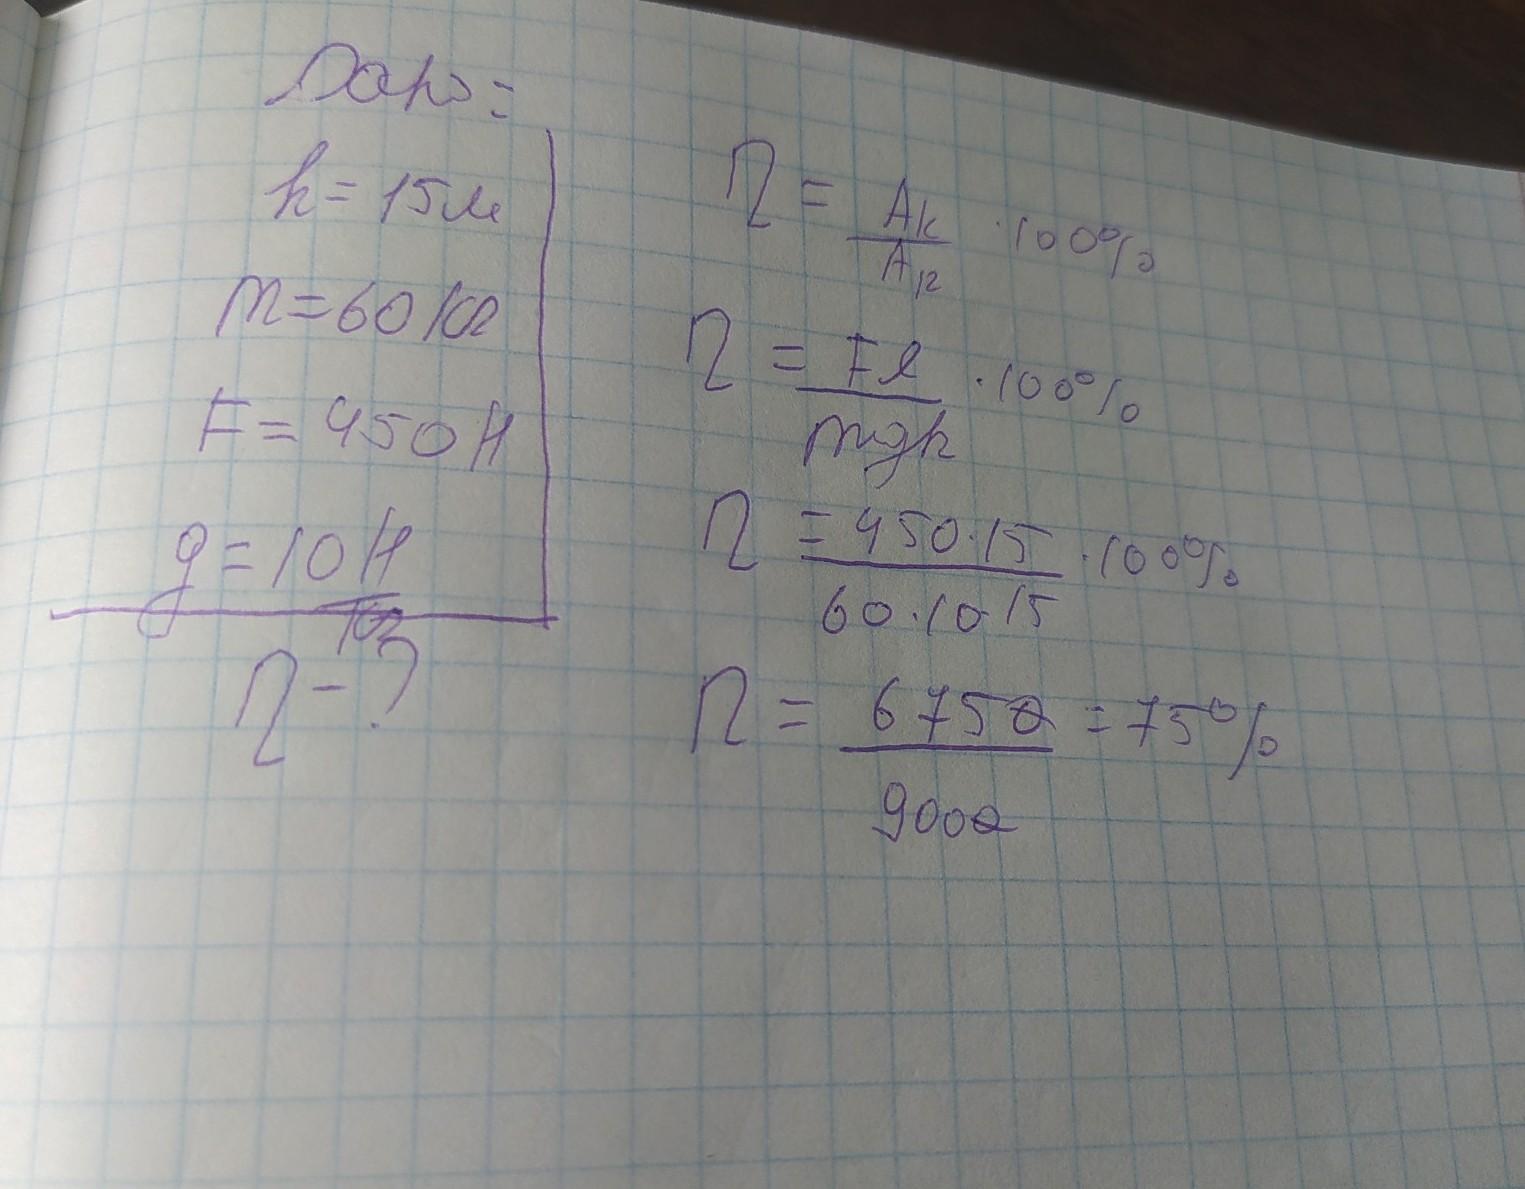 Дано:
h = 15 м
m = 60 кг
F = 450 Н
g = 10 Н/кг
η - ?
η = Aк/Aп · 100%
η = Fl/mgh · 100%
η = 450·15/60·10·15 · 100%
η = 6750/9000 = 75%